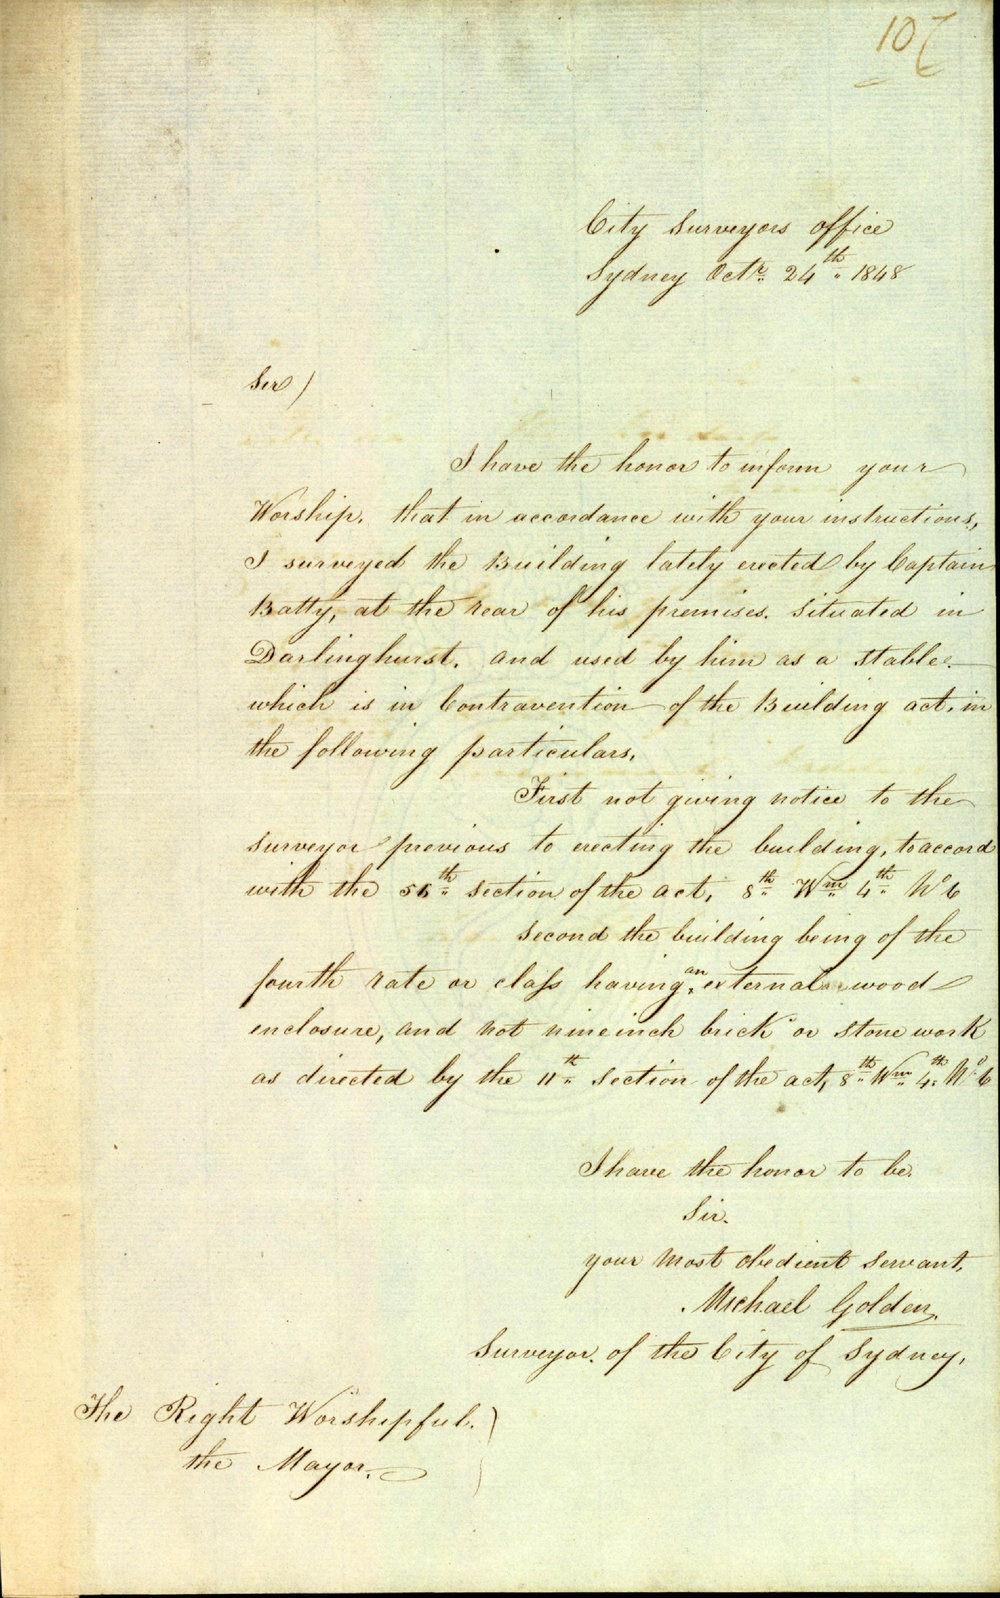 107
City Surveyors office
Sydney Octr. 24th 1848
Sir)
I have the honor to inform your
Worship. that in accordance with your instructions,
I surveyed the Building lately erected by Captain
Batty, at the rear of his premises. situated in
Darlinghurst. and used by him as a stable.
which is in Contravention of the Building act, in
the following particulars,
First not giving notice to the
surveyor previous to erecting the building, to accord
with the 56th section of the act, 8th Wm 4th No 6
second the building being of the
fourth rate or class having an external wood
enclosure, and not nine inch brick or stone work
as directed by the 11th section of the act, 8th Wm 4th No 6
I have the honor to be.
Sir.
your most obedient servant,
Michael Golden.
Surveyor. of the City of Sydney,
The Right Worshipful. )
the Mayor.